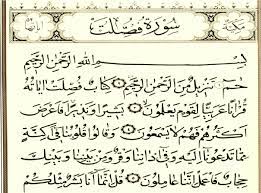 سُورَةُ فُصِّلَتْ
بِسْمِ اللَّهِ الرَّحْمَٰنِ الرَّحِيمِ
حم تَنْزِيلٌ مِنَ الرَّحْمَٰنِ الرَّحِيمِ كِتَابٌ فُصِّلَتْ آيَاتُهُ
قُرْآنًا عَرَبِيًّا لِقَوْمٍ يَعْلَمُونَ بَشِيرًا وَنَذِيرًا فَأَعْرَضَ
أَكْثَرُهُمْ فَهُمْ لَا يَسْمَعُونَ وَقَالُوا قُلُوبُنَا فِي أَكِنَّةٍ
مِمَّا تَدْعُونَا إِلَيْهِ وَفِي آذَانِنَا وَقْرٌ وَمِنْ بَيْنِنَا وَبَيْنِكَ
حِجَابٌ فَاعْمَلْ إِنَّنَا عَامِلُونَ قُلْ إِنَّمَا أَنَا بَشَرٌ مِثْلُكُمْ